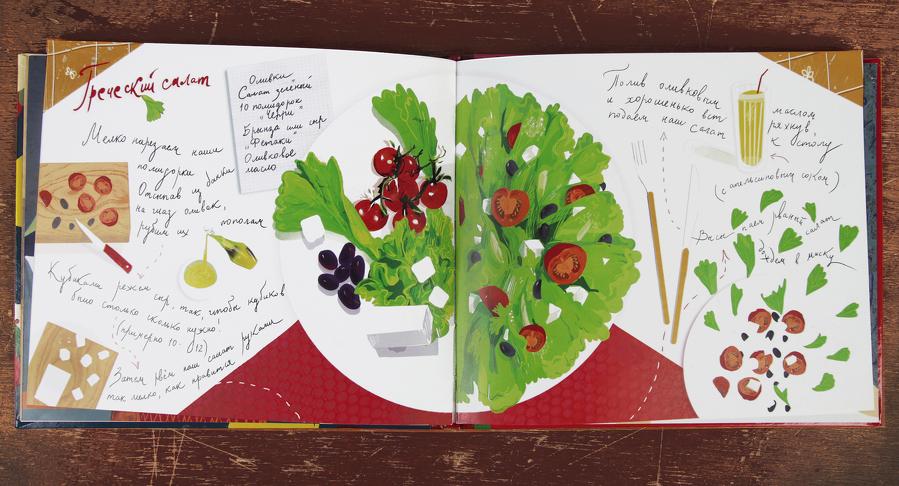 Греческий салат
Оливки
Салат зелёный
10 помидорок
"Черри"
Брынза или сыр
"Фетаки"
Оливковое
масло
Мелко нарезаем наши
помидорки
Отсыпав из банки
на глаз оливок,
рубим их пополам
Кубиками режем сыр, так, чтобы кубиков
было столько сколько нужно!
(примерно 10-12)
Затем рвём наш салат руками
так мелко, как нравится
Полив оливковым маслом
и хорошенько встряхнув,
подаем наш салат к столу
(с апельсиновым соком)
Высыпаем рваный салат
в миску